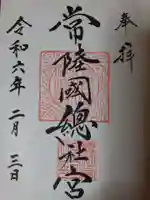 奉拝
常陸國總社宮
令和六年二月三日